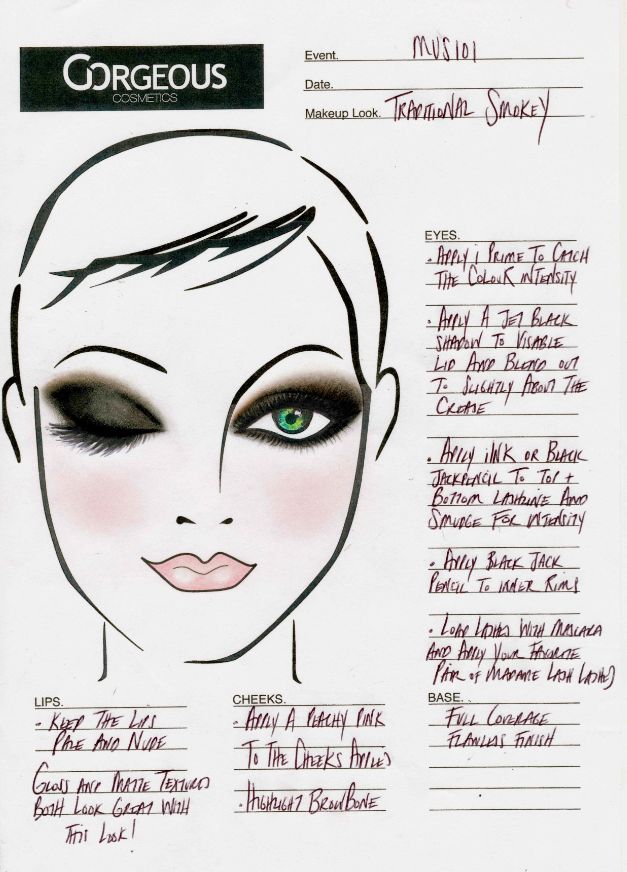 GORGEOUS
COSMETICS
Event. MUS101
Date.
Makeup Look. TRADITIONAL SMOKEY
EYES.
· APPLY i PRIME TO CATCH
THE COLOUR INTENSITY
· APPLY A JET BLACK
SHADOW TO VISABLE
LID AND BLEND OUT
TO SLIGHTLY ABOUT THE
CREASE
· APPLY iINK OR BLACK
JACKPENCIL TO TOP +
BOTTOM LASHLINE AND
SMUDGE FOR INTENSITY
· APPLY BLACK JACK
PENCIL TO INNER RIMS
· LOAD LASHES WITH MASCARA
AND APPLY YOUR FAVORITE
PAIR OF MADAME LASH LASHES
LIPS.
· KEEP THE LIPS
PALE AND NUDE
GLOSS AND MATTE TEXTURES
BOTH LOOK GREAT WITH
THIS LOOK!
CHEEKS.
· APPLY A PEACHY PINK
TO THE CHEEKS APPLES
· HIGHLIGHT BROWBONE
BASE.
FULL COVERAGE
FLAWLESS FINISH